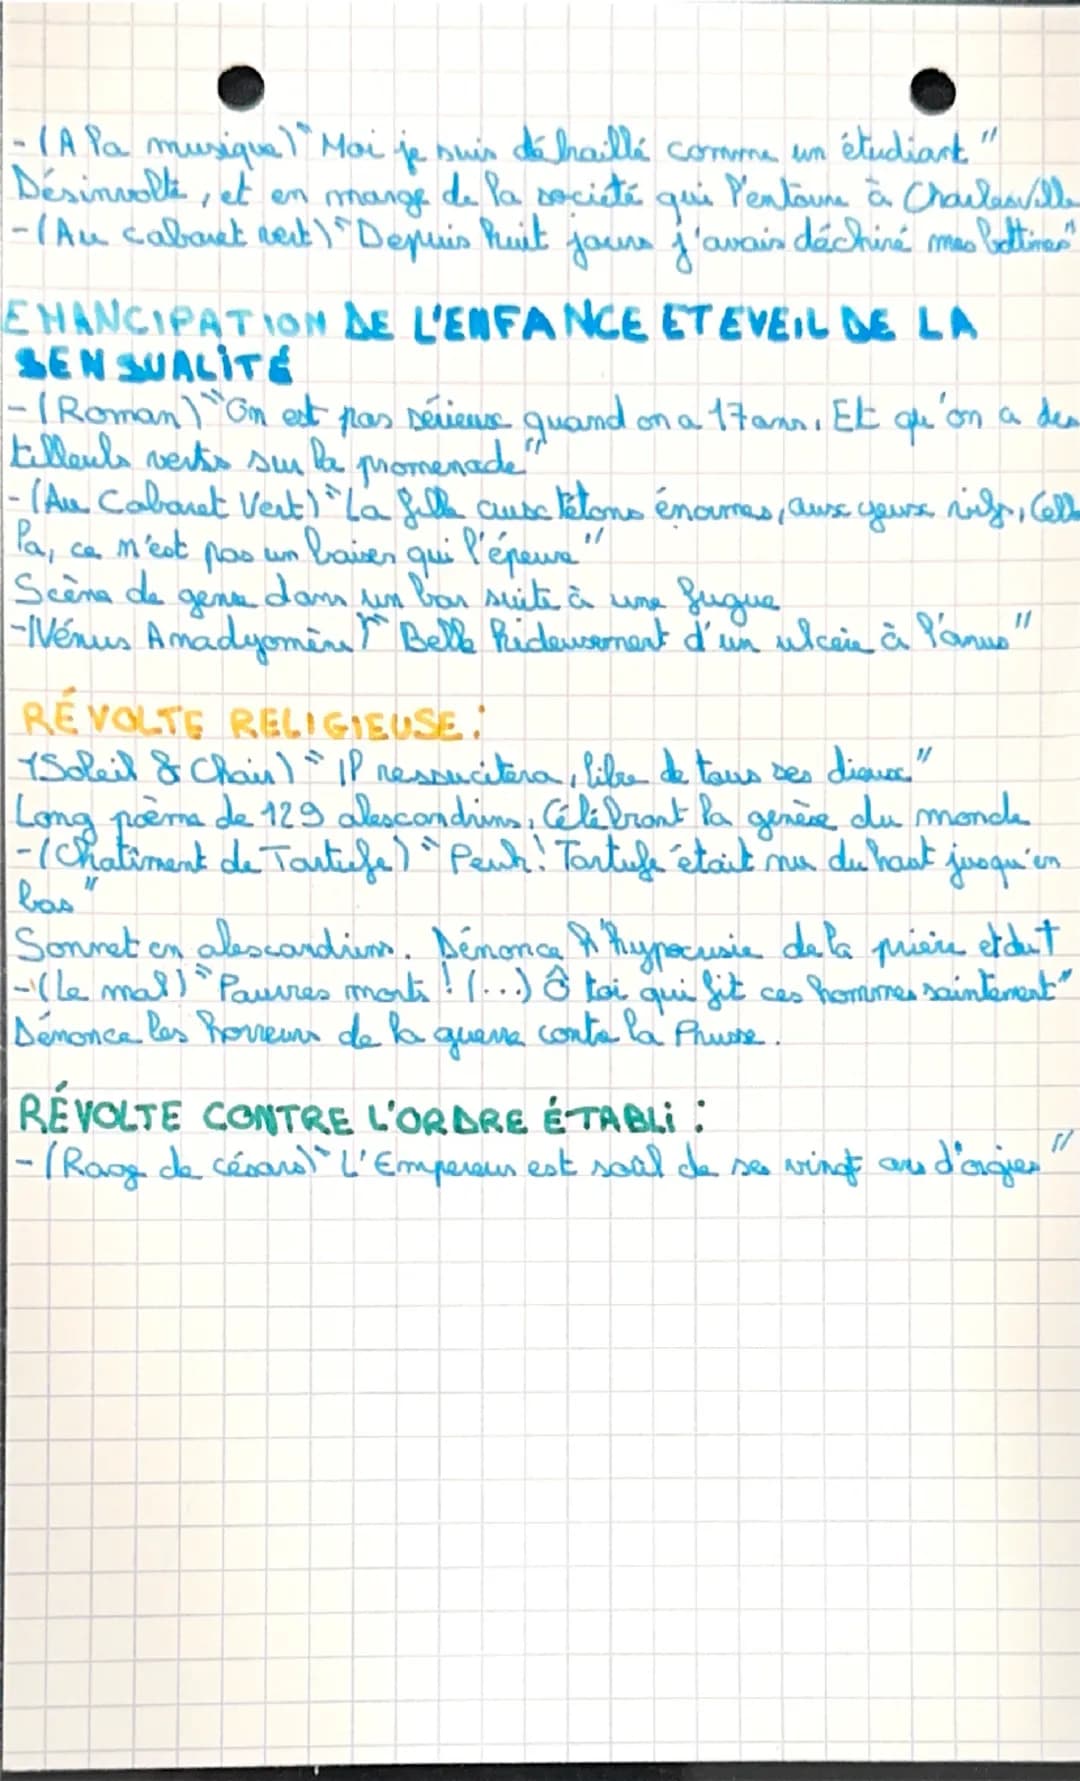 - (A la musique) "Moi je suis débraillé comme un étudiant"
Désinvolte, et en marge de la société qui l'entoure à Charlesville
- (Au cabaret vert) "Depuis huit jours j'avais déchiré mes bottines"
EMANCIPATION DE L'ENFANCE ET EVEIL DE LA
SENSUALITÉ
- (Roman) "On est pas sérieux quand on a 17 ans, Et qu'on a des
tilleuls verts sur la promenade"
- (Au Cabaret Vert) "La fille aux tétons énormes, aux yeux vifs, Celle
là, ce n'est pas un baiser qui l'épeure"
Scène de genre dans un bar suite à une fugue
- (Vénus Amadyomène) "Belle hideusement d'un ulcère à l'anus"
RÉVOLTE RELIGIEUSE :
- (Soleil & Chair) "Il ressucitera, libre de tous ses dieux"
Long poème de 129 alescandrins, Célébrant la genèse du monde
- (Chatiment de Tartufe) "Peuh! Tartufe était nu du haut jusqu'en
bas"
Sonnet en alescandrins. Dénonce l'hypocrisie de la prière et du t
- (Le mal) "Pauvres morts ! (...) Ô toi qui fit ces hommes saintement"
Dénonce les horreurs de la guerre contre la Prusse.
RÉVOLTE CONTRE L'ORDRE ÉTABLI :
- (Rage de césars) "L'Empereur est soûl de ses vingt ans d'orgies"